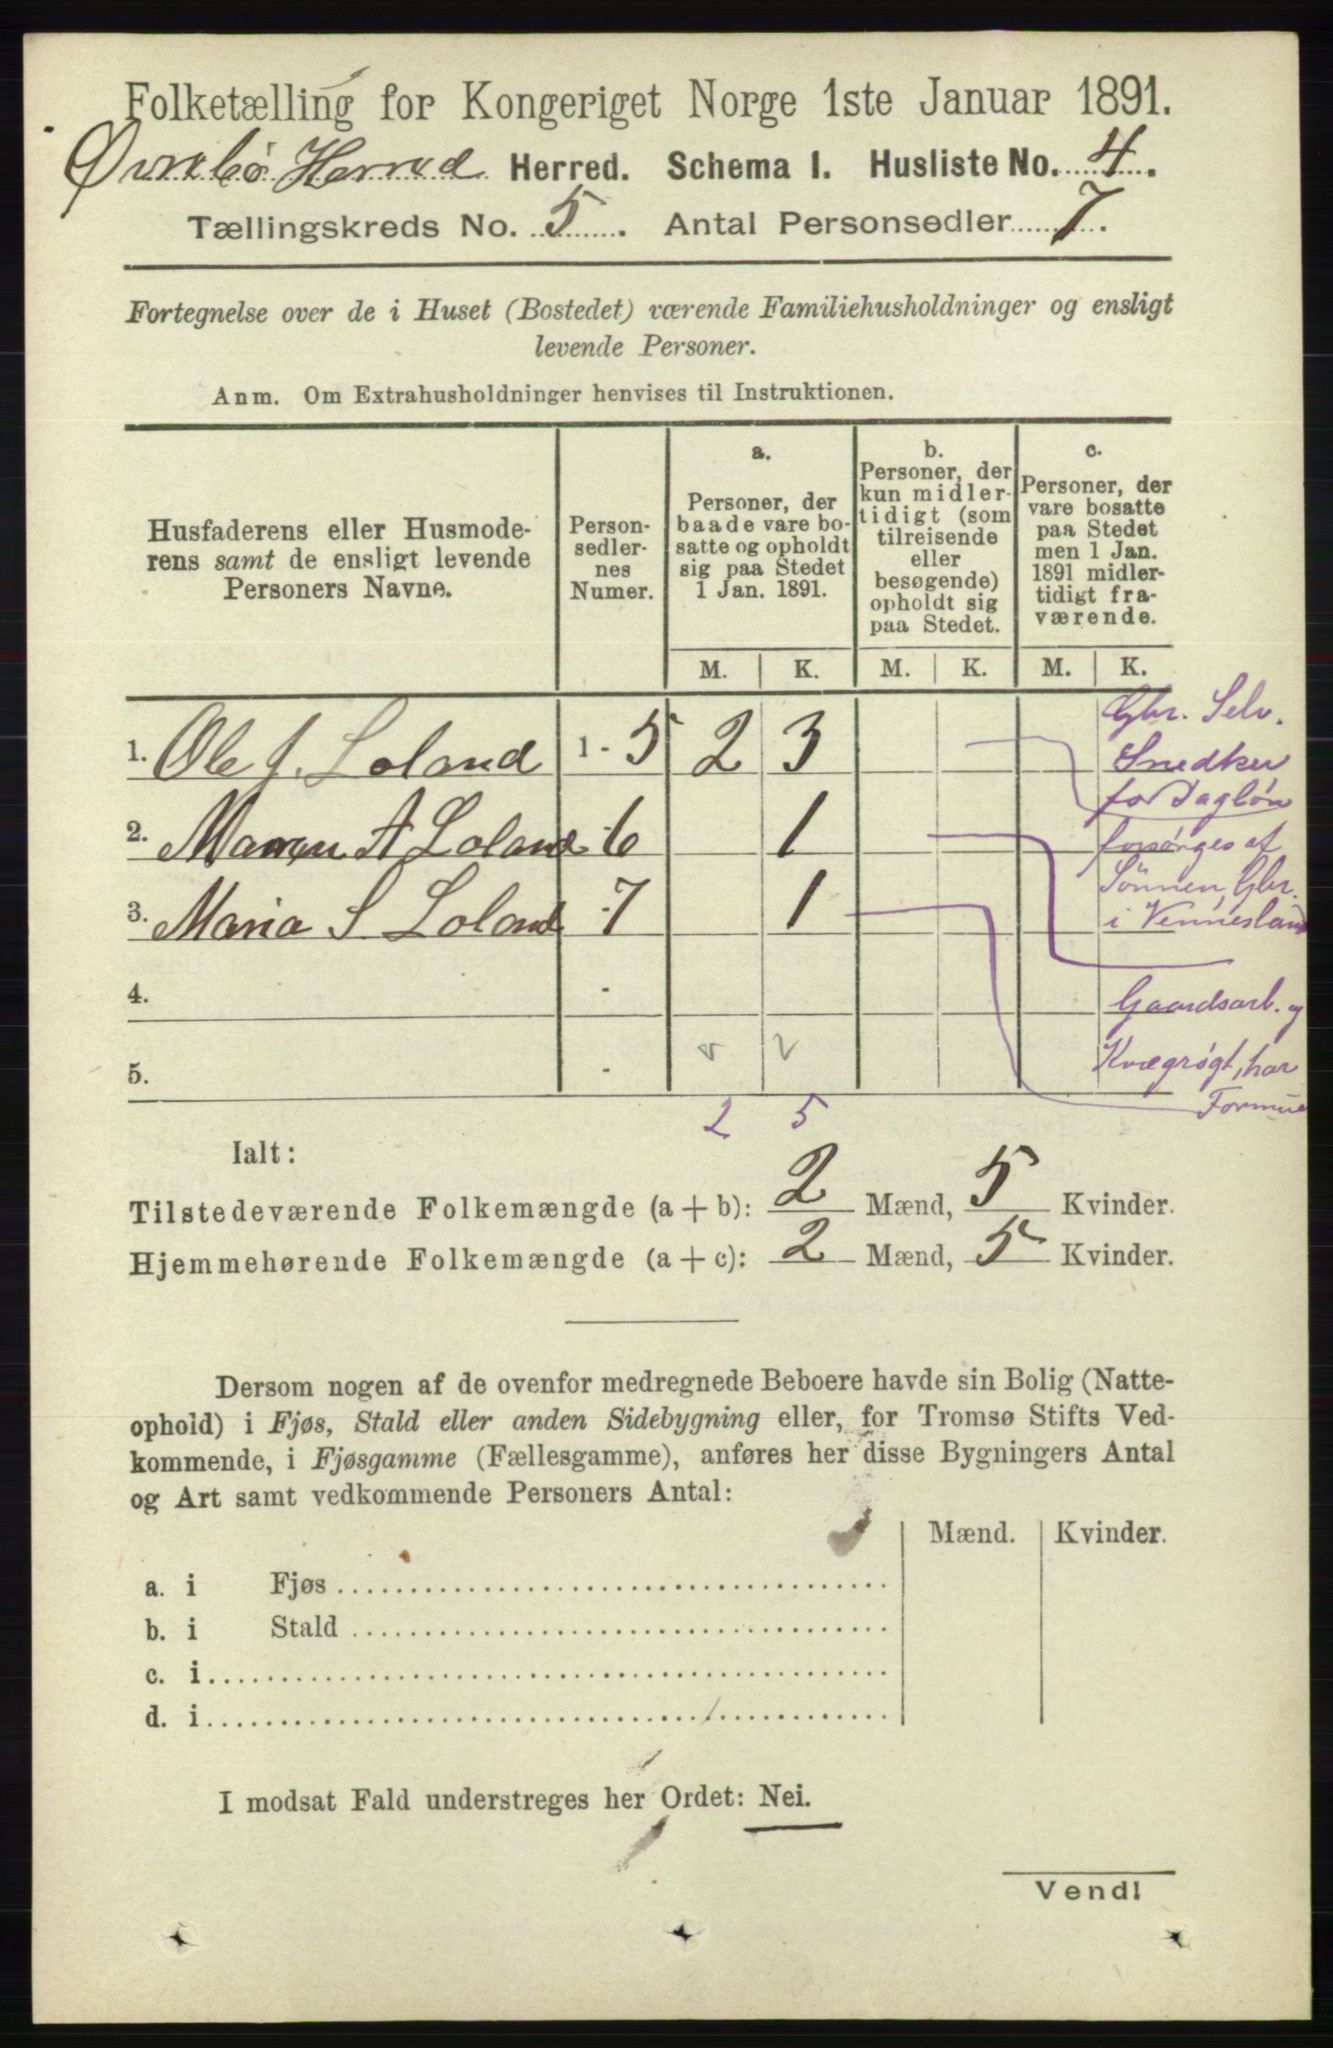 Folketælling for Kongeriget Norge 1ste Januar 1891.
Øvrebø Herred Herred. Schema I. Husliste No. 4.
Tællingskreds No. 5. Antal Personsedler 7.
Fortegnelse over de i Huset (Bostedet) værende Familiehusholdninger og ensligt
levende Personer.
Anm. Om Extrahusholdninger henvises til Instruktionen.
Husfaderens eller Husmode-
rens samt de ensligt levende
Personers Navne.
Person-
sedler-
nes
Numer.
a.
Personer, der
baade vare bo-
satte og opholdt
sig paa Stedet
1 Jan. 1891.
b.
Personer, der
kun midler-
tidigt (som
tilreisende
eller
besøgende)
opholdt sig
paa Stedet.
c.
Personer, der
vare bosatte
paa Stedet
men 1 Jan.
1891 midler-
tidigt fra-
værende.
M. K. M. K. M. K.
1. Ole J. Loland 1 - 5 2 3
Gbr. Selv.
Snedker
for Dagløn
2. Maren A Loland - 6 1
forsørges af
Sønnen, Gbr.
i Vennesland
3. Maria S. Loland - 7 1
Gaardsarb. og
Kvægrøgt, har
Formue
4. -
5. -
2 5
Ialt:
Tilstedeværende Folkemængde (a + b): 2 Mænd, 5 Kvinder.
Hjemmehørende Folkemængde (a + c): 2 Mænd, 5 Kvinder.
Dersom nogen af de ovenfor medregnede Beboere havde sin Bolig (Natte-
ophold) i Fjøs, Stald eller anden Sidebygning eller, for Tromsø Stifts Ved-
kommende, i Fjøsgamme (Fællesgamme), anføres her disse Bygningers Antal
og Art samt vedkommende Personers Antal:
Mænd. Kvinder.
a. i Fjøs
b. i Stald
c. i
d. i
I modsat Fald understreges her Ordet: Nei.
Vendl